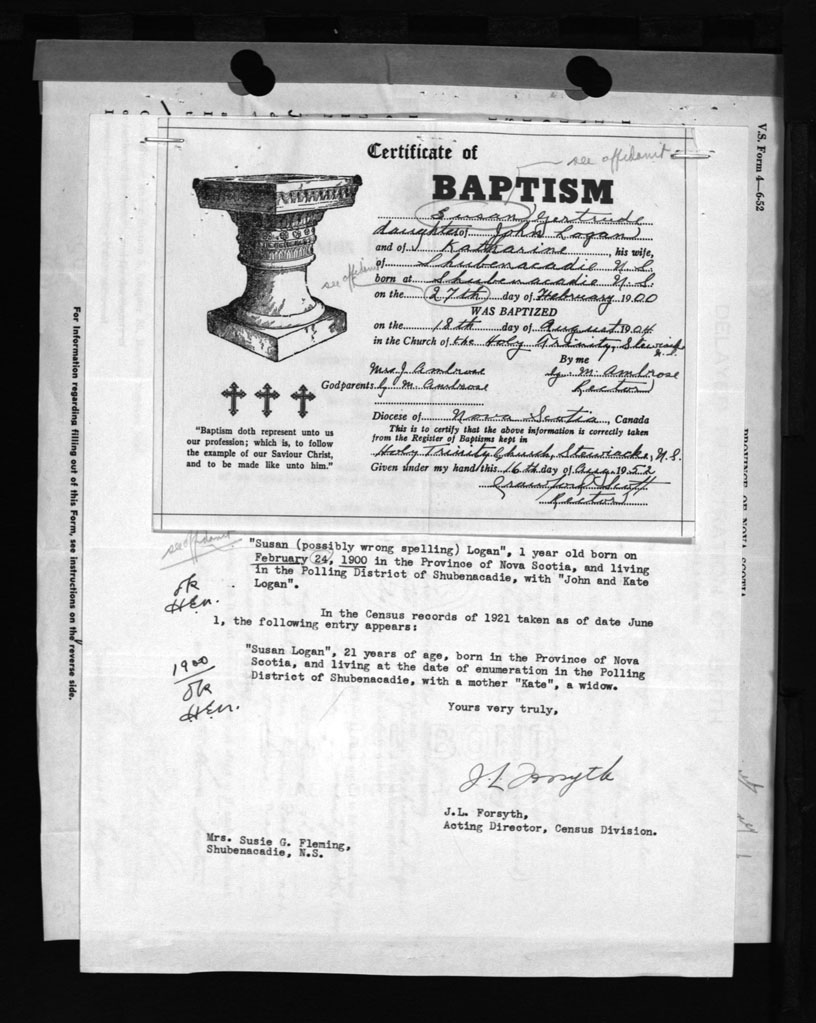 V.S. Form 4—6-52
Certificate of
see affidavit
BAPTISM
Susan Gertrude
daughter of John Logan
and of Katharine, his wife,
of Shubenacadie N.S.
born at Shubenacadie N.S.
see affidavit
on the 27th day of February 1900
WAS BAPTIZED
on the 18th day of August 1904
in the Church of the Holy Trinity, Stewiacke
N.S.
By me
Mrs. J. Ambrose
G. M. Ambrose
Godparents G. M. Ambrose
Rector
Diocese of Nova Scotia, Canada
This is to certify that the above information is correctly taken
from the Register of Baptisms kept in
Holy Trinity Church, Stewiacke, N.S.
Given under my hand this 16th day of Aug. 1952
Crawford Scott
Rector
"Baptism doth represent unto us
our profession; which is, to follow
the example of our Saviour Christ,
and to be made like unto him."
see affidavit
"Susan (possibly wrong spelling) Logan", 1 year old born on
February 24, 1900 in the Province of Nova Scotia, and living
in the Polling District of Shubenacadie, with "John and Kate
Logan".
ok
H.E.M.
In the Census records of 1921 taken as of date June
1, the following entry appears:
"Susan Logan", 21 years of age, born in the Province of Nova
Scotia, and living at the date of enumeration in the Polling
District of Shubenacadie, with a mother "Kate", a widow.
1900
ok
H.E.M.
Yours very truly,
J. L. Forsyth
J.L. Forsyth,
Acting Director, Census Division.
Mrs. Susie G. Fleming,
Shubenacadie, N.S.
For Information regarding filling out of this Form, see instructions on the reverse side.
PROVINCE OF NOVA SCOTIA